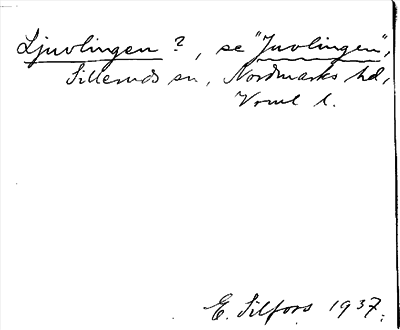 Ljuvlingen ?, se "Juvlingen",
Sillerud sn, Nordmarks hd,
Vrml l.
E. Silfors 1937.